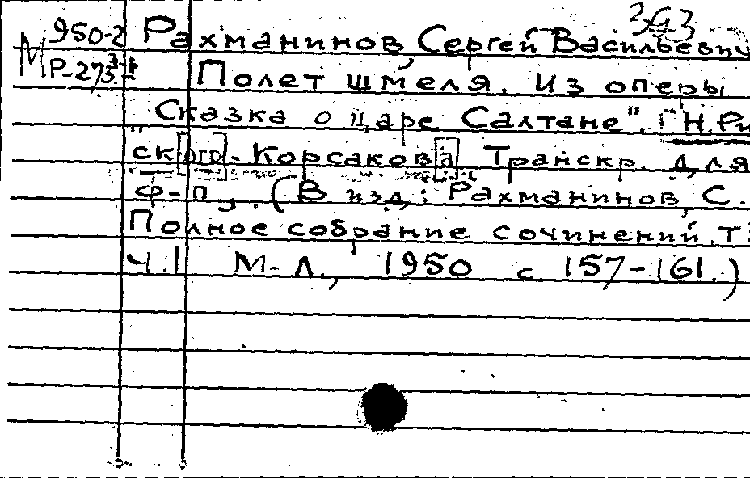 343
М 950-2 Рахманинов, Сергей Васильевич
Р-273 Полет шмеля. Из оперы
"Сказка о царе Салтане". [Н. Ри
"ск[ого]-Корсаков[а] Транскр. для
ф-п. (В изд.: Рахманинов, С.
Полное собрание сочинений. Т.
Ч. I М.-Л., 1950 с 157-161.)